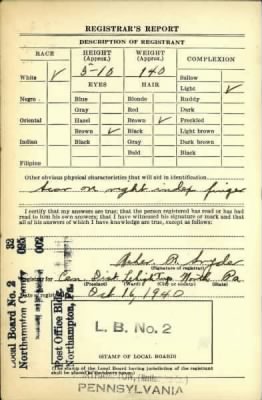 REGISTRAR'S REPORT
DESCRIPTION OF REGISTRANT
RACE HEIGHT (Approx.) WEIGHT (Approx.) COMPLEXION
5-10 140 Sallow
White ✓ EYES HAIR Light ✓
Negro Blue Blonde Ruddy
Gray Red Dark
Oriental Hazel Brown ✓ Freckled
Brown ✓ Black Light brown
Indian Black Gray Dark brown
Bald Black
Filipino
Other obvious physical characteristics that will aid in identification
Scar on right index finger
I certify that my answers are true; that the person registered has read or has had
read to him his own answers; that I have witnessed his signature or mark and that
all of his answers of which I have knowledge are true, except as follows:
Snyder
(Signature of registrar)
Registrar for
Pa.
(Precinct) (Ward) (City or county) (State)
Date of registration Oct 16, 1940
Local Board No. 2 32
Northampton County 095
002
Post Office Bldg.
Northampton, Pa.
L. B. No. 2
STAMP OF LOCAL BOARD
(The stamp of the Local Board having jurisdiction of the registrant
shall be placed in the above space.)
PENNSYLVANIA